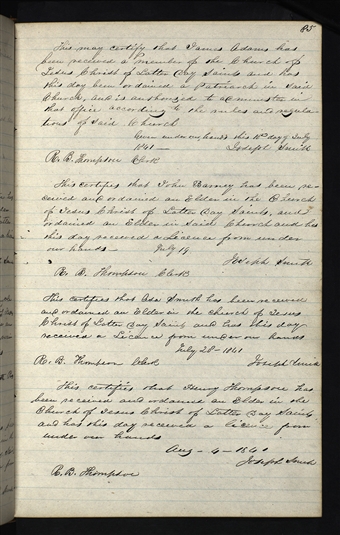 85
This may certify that James Adams has
been received a member of the Church of
Jesus Christ of Latter Day Saints and has
this day been ordained a Patriarch in said
Church, and is authorized to administer in
that office according to the rules and regula-
tions of said Church
Given under our hands this 10th day of July
1841 — Joseph Smith
R. B. Thompson Clerk
This certifies that John Barney has been re-
ceived and ordained an Elder in the Church
of Jesus Christ of Latter Day Saints, and
ordained an Elder in said Church and has
this day received a Licence from under
our hands — July 19
Joseph Smith
R. B. Thompson Clerk
This certifies that Asa Smith has been received
and ordained an Elder in the Church of Jesus
Christ of Latter Day Saints and has this day
received a Licence from under our hands
July 28th 1841
R. B. Thompson Clerk Joseph Smith
This certifies that Henry Thompson has
been received and ordained an Elder in the
Church of Jesus Christ of Latter Day Saints
and has this day received a licence from
under our hands
Aug - 4 - 1841
Joseph Smith
R. B. Thompson